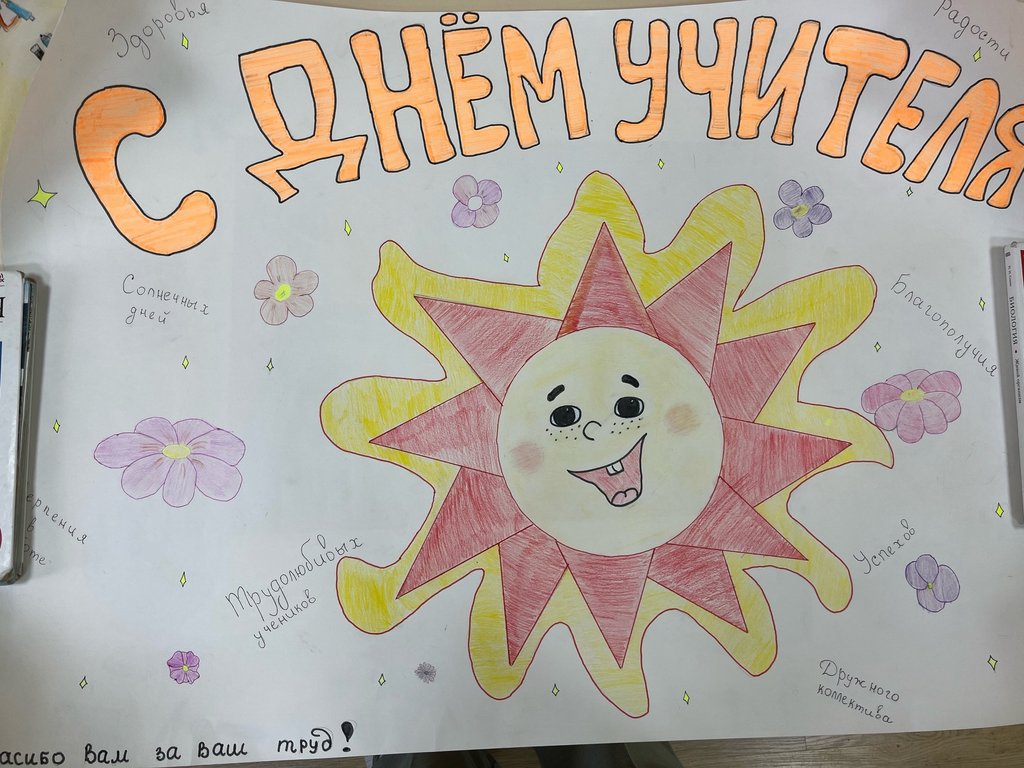 Здоровья
Радости
С ДНЁМ УЧИТЕЛЯ
Солнечных
дней
Благополучия
БИОЛОГИЯ
ерпения
в
оте
Трудолюбивых
учеников
Успехов
Дружного
коллектива
асибо Вам за Ваш труд!